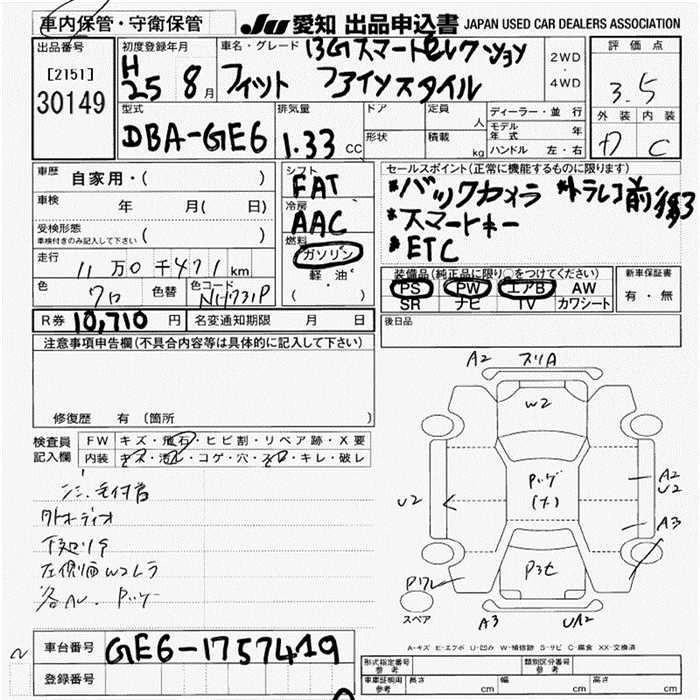 車内保管・守衛保管
JU 愛知 出品申込書 JAPAN USED CAR DEALERS ASSOCIATION
出品番号
[2151]
30149
初度登録年月
H
25 8月
車名・グレード
13Gスマートセレクション
フィット ファインスタイル
2WD
・
4WD
評価点
3.5
外装 内装
カ C
型式
DBA-GE6
排気量
1.33 CC
ドア
形状
定員 人
積載 kg
ディーラー・並行
モデル年式 年
ハンドル 左・右
車歴 自家用・( )
車検 年 月( 日)
受検形態
車検付きのみ記入して下さい ( )
走行
11万0千471km
色 クロ 色替 色コード NH731P
シフト
FAT
冷房
AAC
燃料
ガソリン
軽・油
( )
セールスポイント(正常に機能するものに限ります)
*バックカメラ *ドラレコ前後
*スマートキー
*ETC
装備品(純正品に限り○をつけてください)
PS PW エアB AW
SR ナビ TV カワシート
新車保証書
有・無
R券 10,710円 名変通知期限 月 日
後日品
注意事項申告欄(不具合内容等は具体的に記入して下さい)
修復歴 有(箇所 )
検査員記入欄
FW キズ・飛石・ヒビ割・リペア跡・X要
内装 キズ・汚レ・コゲ・穴・スレ・キレ・破レ
外オーディオ
下廻りサ
左側面Wコムラ
A2 スリA
W2
U2
A2
U2
A3
A3 UA2
スペア
A-キズ E-エクボ U-凹み W-補修跡 S-サビ C-腐食 XX-交換済
車台番号 GE6-1757419
登録番号
形式指定番号 参考
類別区分番号 参考
車庫証明用 参考
長さ cm 幅 cm 高さ cm